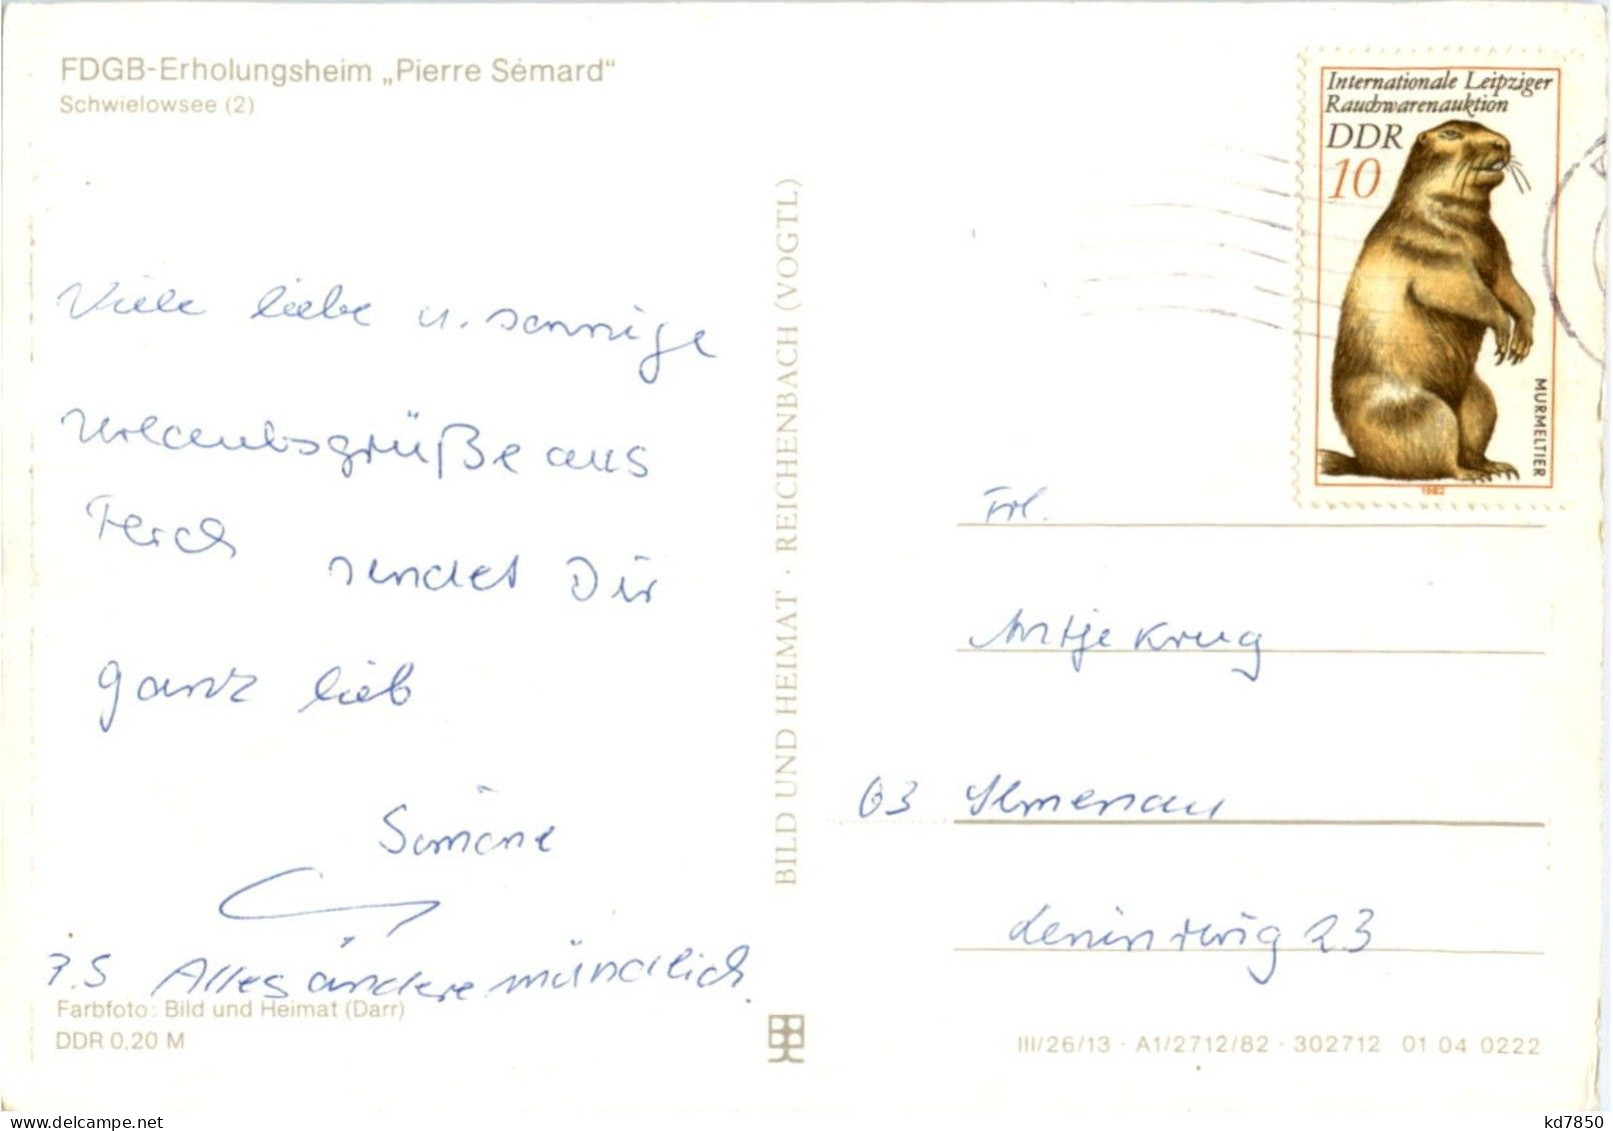 FDGB-Erholungsheim „Pierre Sémard"
Schwielowsee (2)
Viele liebe u. sonnige
Urlaubsgrüße aus
Ferch sendet Dir
ganz lieb
Simone
P.S Alles andere mündlich.
Farbfoto: Bild und Heimat (Darr)
DDR 0,20 M
BILD UND HEIMAT · REICHENBACH (VOGTL)
Internationale Leipziger
Rauchwarenauktion
DDR
10
MURMELTIER
1982
Frl.
Antje Krug
63 Ilmenau
23
III/26/13 · A1/2712/82 · 302712 01 04 0222
www.delcampe.net
kd7850